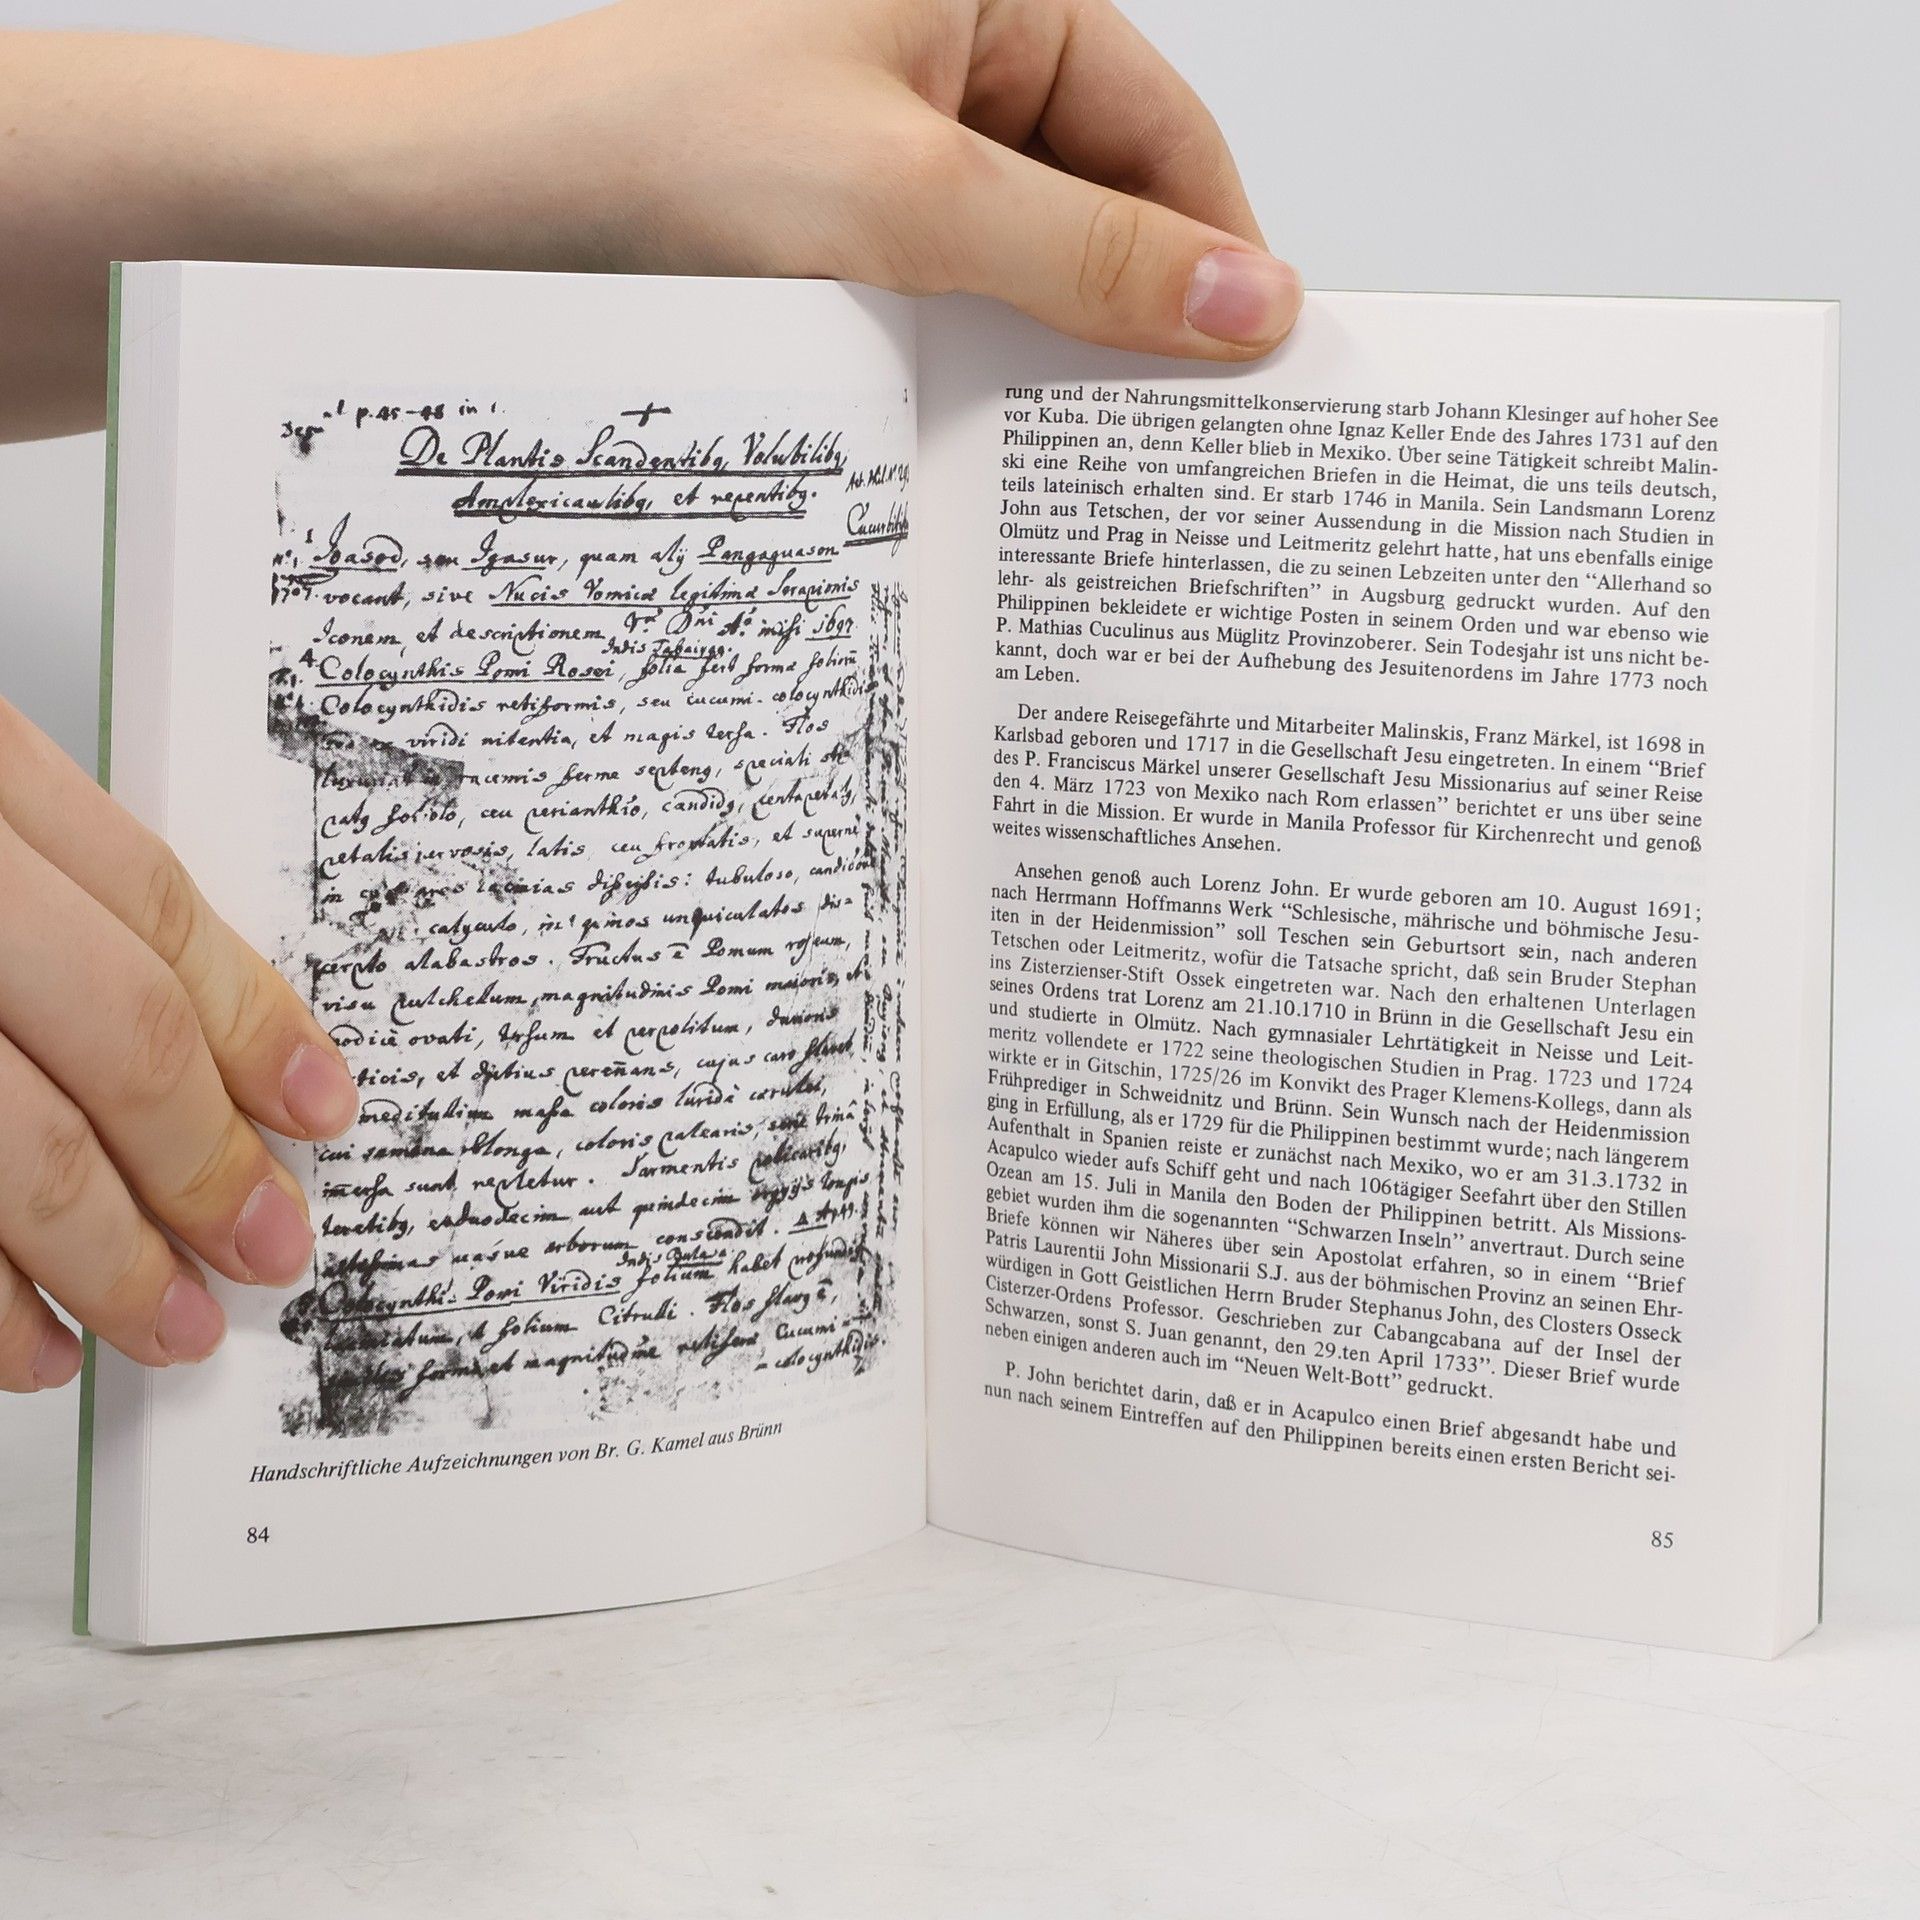 p. 45-48 in 1.
De Plantis Scandentibq, Volubilibq,
Amplexicaulibq, et repentibq.
Igasod, seu Igasur, quam alij Pangaguason
vocant, sive Nucis Vomicæ legitimæ Serapionis
Iconem, et descriptionem misi 1697
Colocynthis Pomi Rosei, folia fert forma foliorũ
Colocynthidis retiformis, seu cucumi-colocynthidis
viridi nitentia, et magis tersa. Flos
racemis ferme septenq, speciali
ceu perianthio, candidq, pentapetalq,
latis, ceu et superne
in lacinias tubuloso,
calyculo, in quinos unguiculatos dis=
cerpto alabastros. Fructus ē Pomum roseum,
visu pulchellum, magnitudinis Pomi maioris, et
modicè ovati, tersum et perpolitum, durioris
corticis, et diutius perennans, cujus caro
meditullium massa coloris
cui semina oblonga, coloris
immersa sunt, repletur. Sarmentis
teretibq, duodecim aut quindecim orgyis longis
usque arborum conscendit.
Colocynthis Pomi Viridis folium habet
folium Citrulli. Flos
forma et magnitudine Cucumi=
=colocynthidis.
Handschriftliche Aufzeichnungen von Br. G. Kamel aus Brünn
84
rung und der Nahrungsmittelkonservierung starb Johann Klesinger auf hoher See
vor Kuba. Die übrigen gelangten ohne Ignaz Keller Ende des Jahres 1731 auf den
Philippinen an, denn Keller blieb in Mexiko. Über seine Tätigkeit schreibt Malin-
ski eine Reihe von umfangreichen Briefen in die Heimat, die uns teils deutsch,
teils lateinisch erhalten sind. Er starb 1746 in Manila. Sein Landsmann Lorenz
John aus Tetschen, der vor seiner Aussendung in die Mission nach Studien in
Olmütz und Prag in Neisse und Leitmeritz gelehrt hatte, hat uns ebenfalls einige
interessante Briefe hinterlassen, die zu seinen Lebzeiten unter den “Allerhand so
lehr- als geistreichen Briefschriften” in Augsburg gedruckt wurden. Auf den
Philippinen bekleidete er wichtige Posten in seinem Orden und war ebenso wie
P. Mathias Cuculinus aus Müglitz Provinzoberer. Sein Todesjahr ist uns nicht be-
kannt, doch war er bei der Aufhebung des Jesuitenordens im Jahre 1773 noch
am Leben.
Der andere Reisegefährte und Mitarbeiter Malinskis, Franz Märkel, ist 1698 in
Karlsbad geboren und 1717 in die Gesellschaft Jesu eingetreten. In einem “Brief
des P. Franciscus Märkel unserer Gesellschaft Jesu Missionarius auf seiner Reise
den 4. März 1723 von Mexiko nach Rom erlassen” berichtet er uns über seine
Fahrt in die Mission. Er wurde in Manila Professor für Kirchenrecht und genoß
weites wissenschaftliches Ansehen.
Ansehen genoß auch Lorenz John. Er wurde geboren am 10. August 1691;
nach Herrmann Hoffmanns Werk “Schlesische, mährische und böhmische Jesu-
iten in der Heidenmission” soll Teschen sein Geburtsort sein, nach anderen
Tetschen oder Leitmeritz, wofür die Tatsache spricht, daß sein Bruder Stephan
ins Zisterzienser-Stift Ossek eingetreten war. Nach den erhaltenen Unterlagen
seines Ordens trat Lorenz am 21.10.1710 in Brünn in die Gesellschaft Jesu ein
und studierte in Olmütz. Nach gymnasialer Lehrtätigkeit in Neisse und Leit-
meritz vollendete er 1722 seine theologischen Studien in Prag. 1723 und 1724
wirkte er in Gitschin, 1725/26 im Konvikt des Prager Klemens-Kollegs, dann als
Frühprediger in Schweidnitz und Brünn. Sein Wunsch nach der Heidenmission
ging in Erfüllung, als er 1729 für die Philippinen bestimmt wurde; nach längerem
Aufenthalt in Spanien reiste er zunächst nach Mexiko, wo er am 31.3.1732 in
Acapulco wieder aufs Schiff geht und nach 106tägiger Seefahrt über den Stillen
Ozean am 15. Juli in Manila den Boden der Philippinen betritt. Als Missions-
gebiet wurden ihm die sogenannten “Schwarzen Inseln” anvertraut. Durch seine
Briefe können wir Näheres über sein Apostolat erfahren, so in einem “Brief
Patris Laurentii John Missionarii S.J. aus der böhmischen Provinz an seinen Ehr-
würdigen in Gott Geistlichen Herrn Bruder Stephanus John, des Closters Osseck
Cisterzer-Ordens Professor. Geschrieben zur Cabangcabana auf der Insel der
Schwarzen, sonst S. Juan genannt, den 29.ten April 1733”. Dieser Brief wurde
neben einigen anderen auch im “Neuen Welt-Bott” gedruckt.
P. John berichtet darin, daß er in Acapulco einen Brief abgesandt habe und
nun nach seinem Eintreffen auf den Philippinen bereits einen ersten Bericht sei-
85